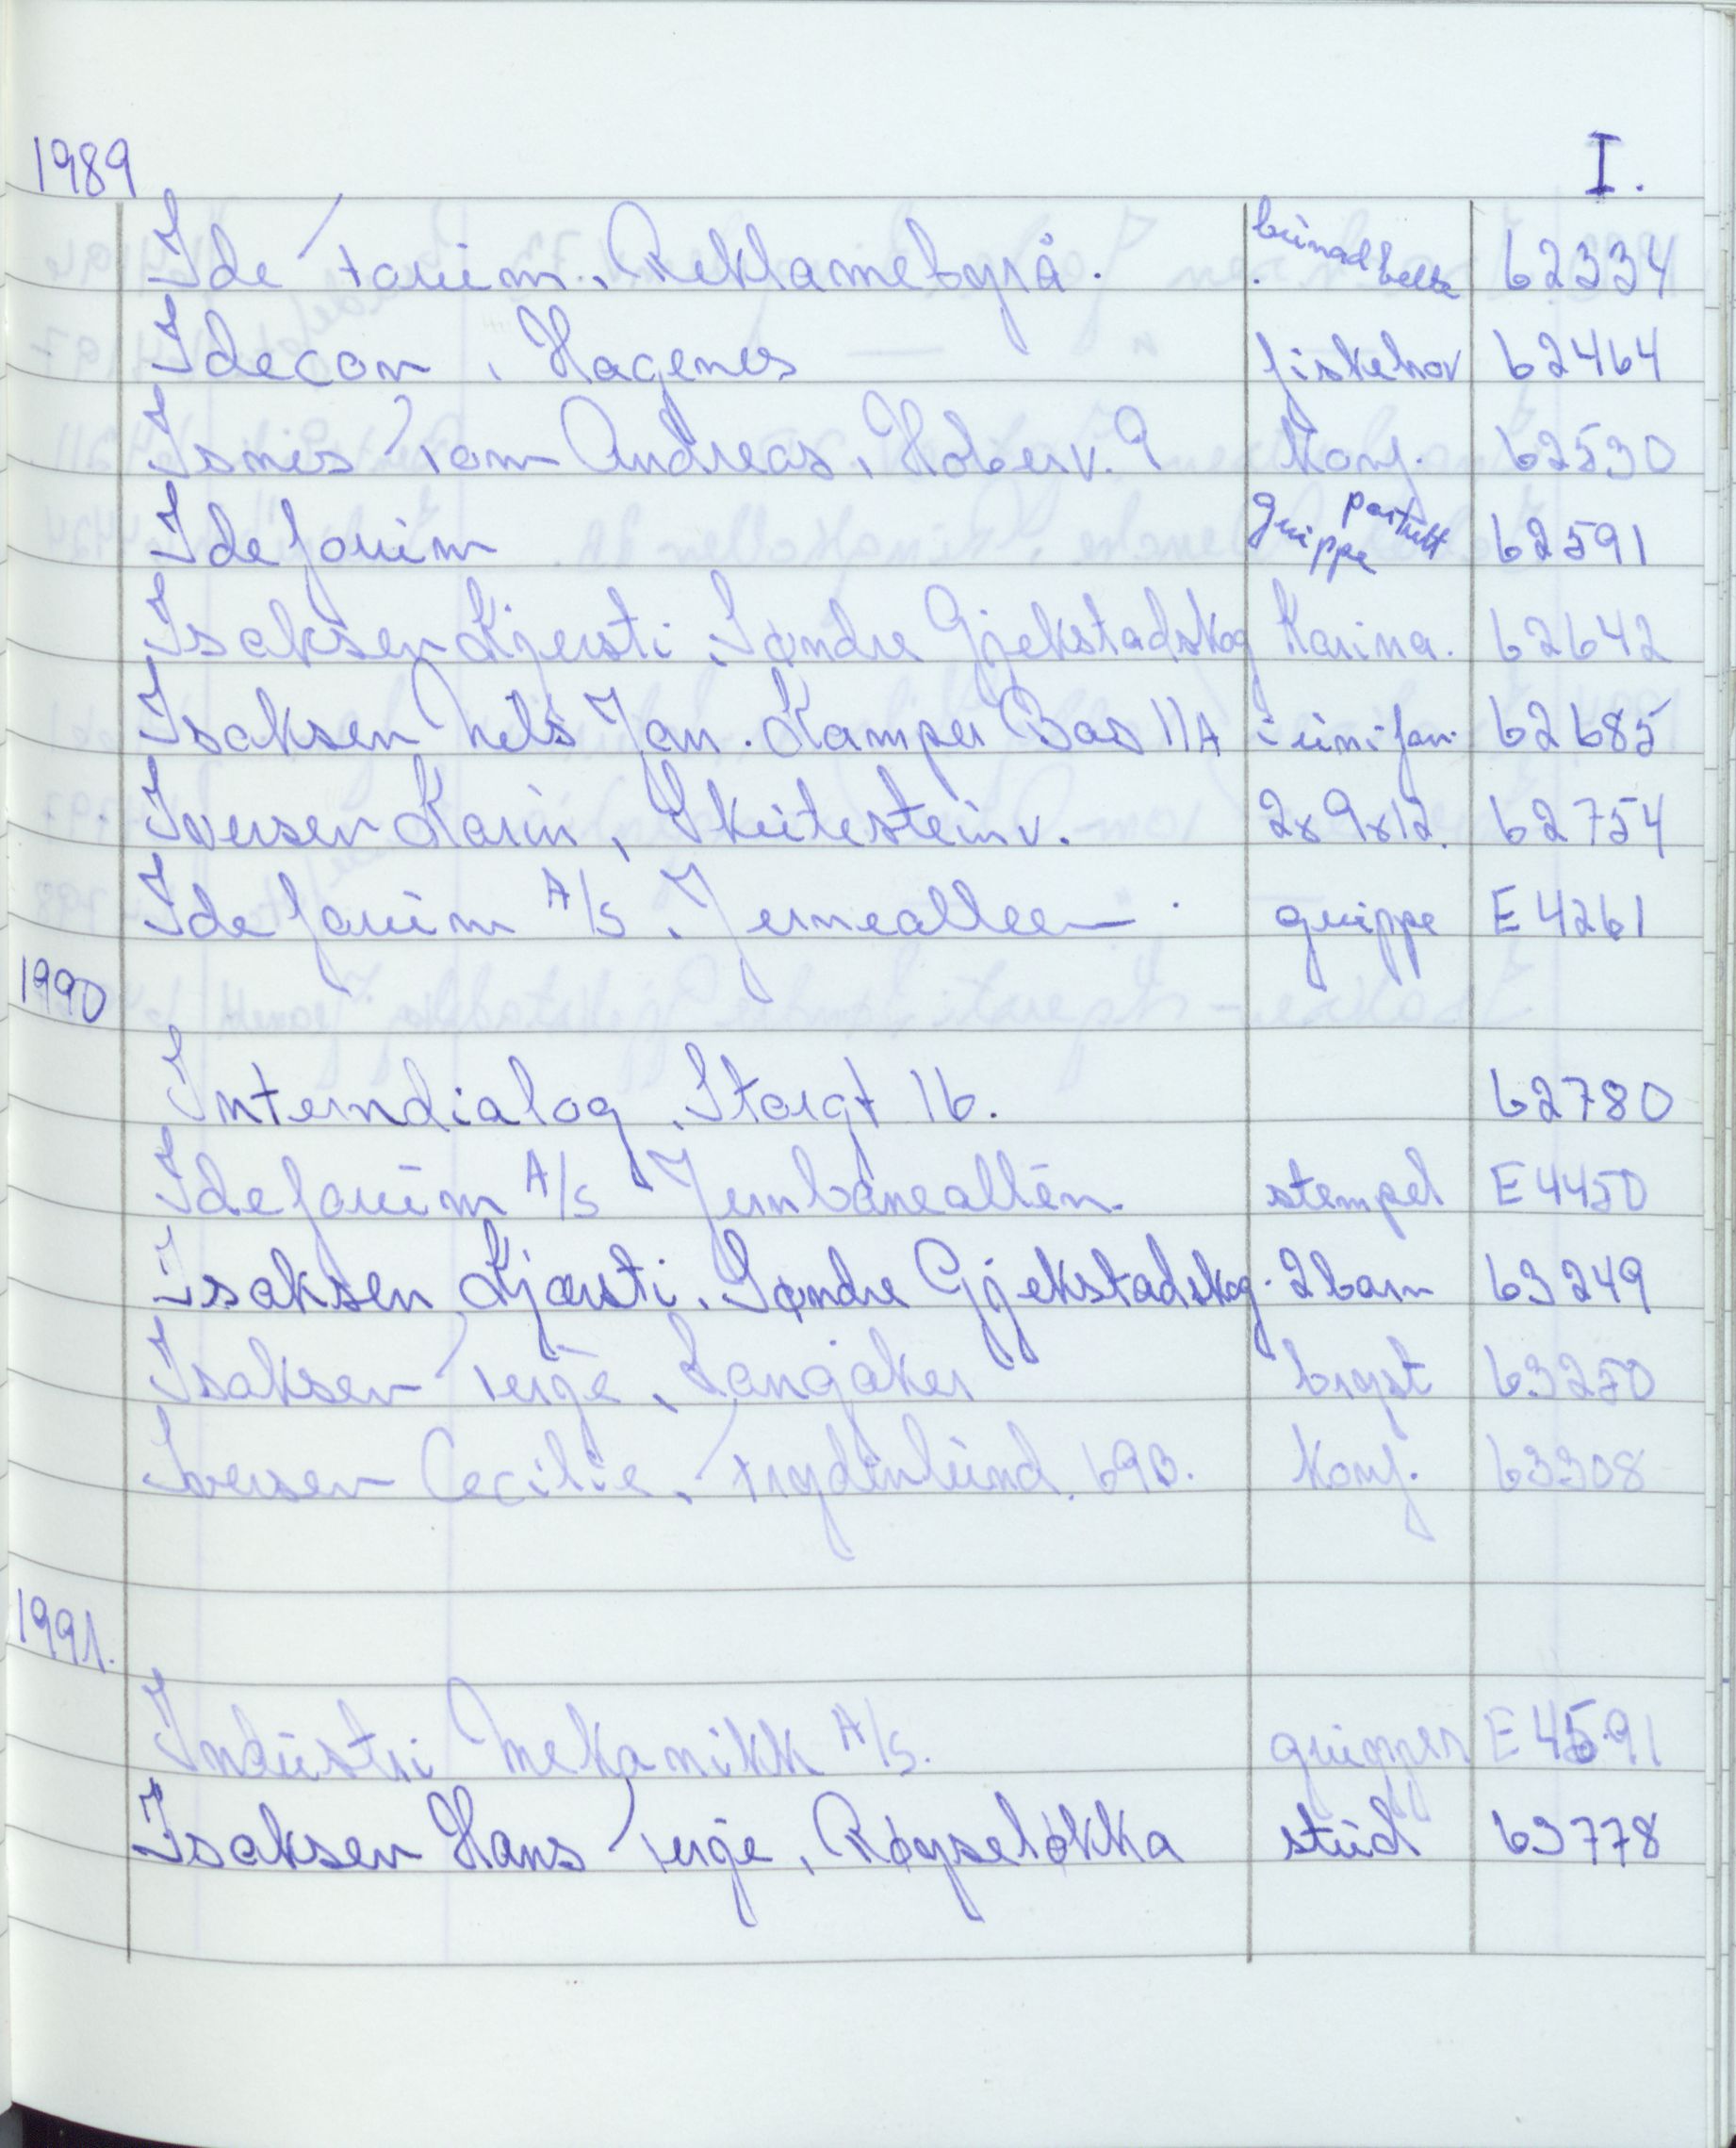 1989 I.
Ide forum. Reklamebyrå. bunad belte 62334
Idecon, Hagenes fiskehov 62464
Isnes Tom Andreas, Hoberv. 9 Konf. 62530
Ideforum gruppe portrett 62591
Isaksen Kjersti, Søndre Gjekstadskog Karina. 62642
Isaksen Nels Jan. Kamper Bas 11A i uniform 62685
Iversen Karin, Skutesteinv. 2x9x12. 62754
Ideforum A/S. Jernealleen gruppe E4261
1990
Interndialog, Storgt 16. 62780
Ideforum A/S Jernbanealléen. stempel E4450
Isaksen Kjersti. Søndre Gjekstadskog. 2 barn 63249
Isaksen Terje, Langåker bryst 63250
Iversen Cecilie, Frydenlund. 69B. Konf. 63308
1991.
Industri Mekanikk A/S. grupper E4591
Isaksen Hans Terje, Røyseløkka stud 63778